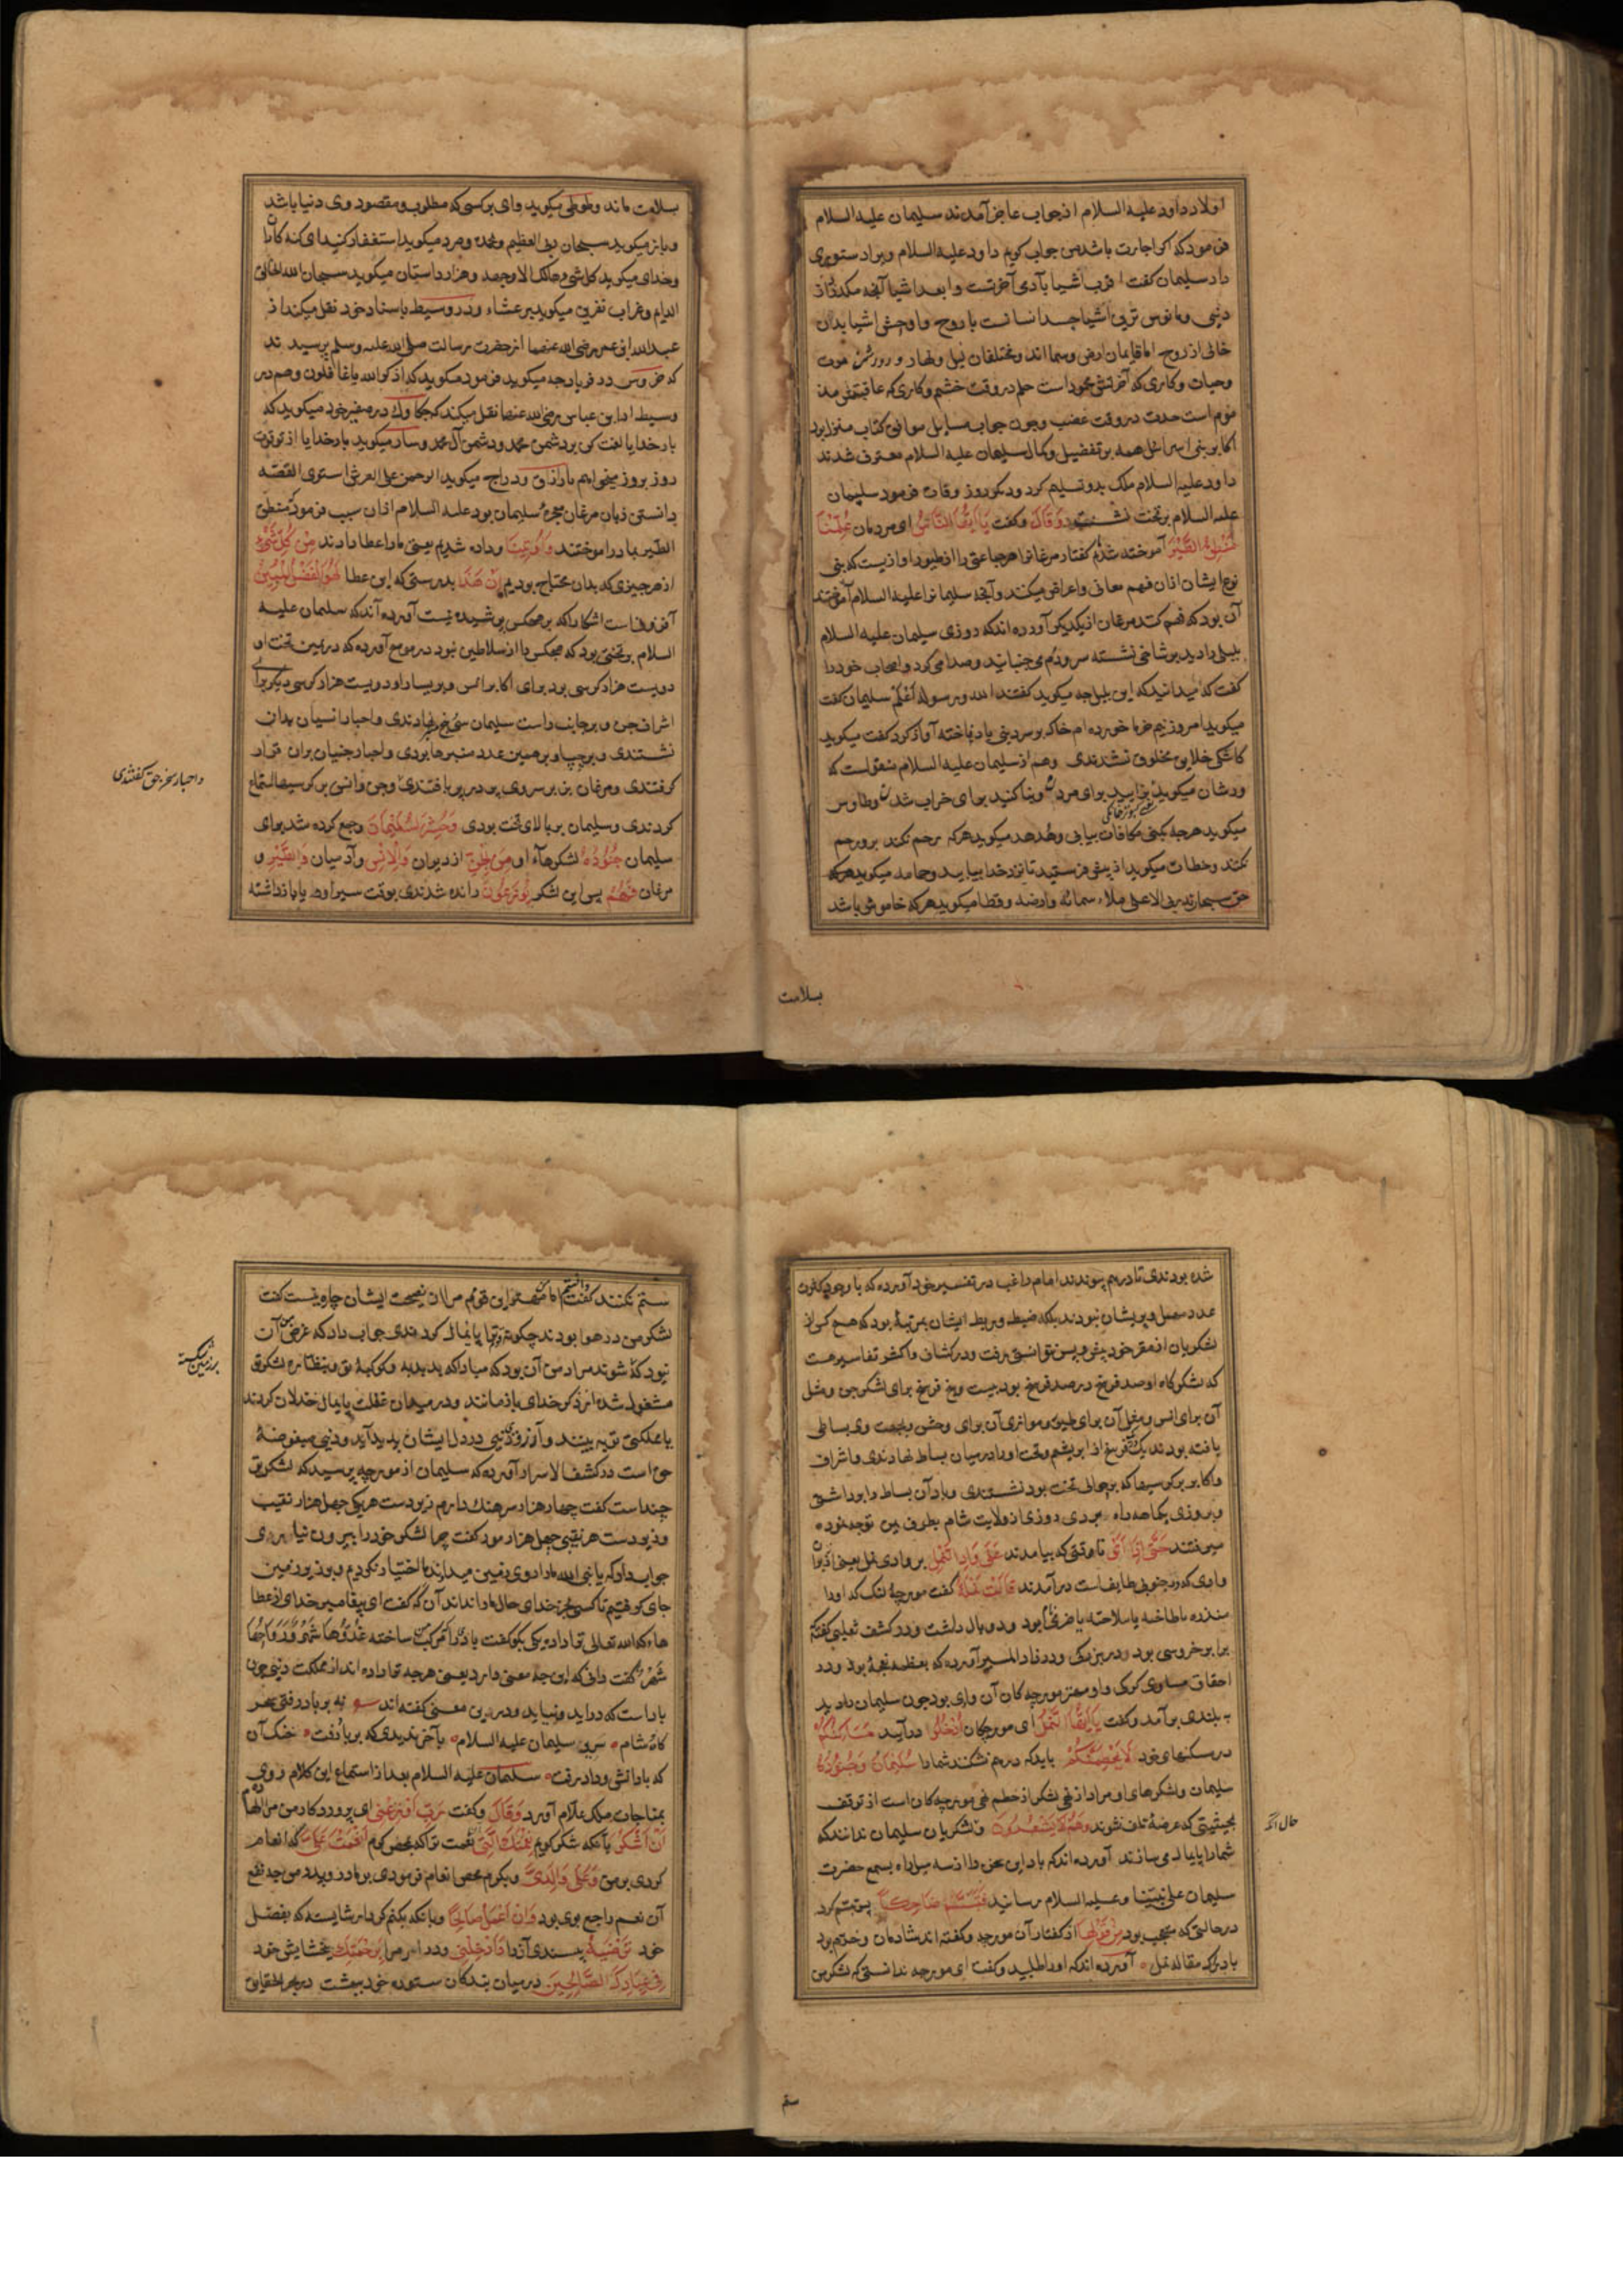 اولاد داود علیه السلام از جواب عاجز آمدند سلیمان علیه السلام
فرمود که اگر اجازت باشد من جواب گویم داود علیه السلام ویرا دستوری
داد سلیمان گفت اقرب اشیا بآدمی آخرتست وابعد اشیا آنچه میگذرد از
دنیی ومانوس ترین اشیا جسد انسانست با روح واوحش اشیا بدن
خالی از روح اما قایمان ارض وسما اند ومختلفان لیل ونهار و دو دشمن موت
وحیات وکاری که آخرش محمود است حلم در وقت خشم وکاری که عاقبتش مذ
موم است حدت در وقت غضب وچون جواب مسایل موافق کتاب منزل بود
اکابر بنی اسرائیل همه بر تفضیل وکمال سلیمان علیه السلام معترف شدند
داود علیه السلام ملک بدو تسلیم کرد ودیگر روز وفات فرمود سلیمان
علیه السلام بر تخت نشست وَقَالَ وگفت یَا اَیُّهَا النَّاسُ ای مردمان عُلِّمْنَا
مَنْطِقَ الطَّیْرِ آموخته شدیم گفتار مرغانرا هر جماعتی را از طیور آوازیست که بنی
نوع ایشان ازان فهم معانی واعراض میکنند وآنچه سلیمانرا علیه السلام آموختند
آن بود که فهم کند مرغان از یکدیگر آورده اند که روزی سلیمان علیه السلام
بلبلی دا دید بر شاخی نشسته سر ودم می جنبانید وصدا می کرد واصحاب خود را
گفت که میدانید که این بلبل چه میگوید گفتند الله ورسوله اعلم سلیمان گفت
میگوید امروز نیم خرما خورده ام خاک بر سر دنیی باد فاخته آواز کرد گفت میگوید
کاشکی خلایق مخلوق نشدندی وهم از سلیمان علیه السلام منقولست که
ورشان میگوید بزایید برای مردن وبنا کنید برای خراب شدن وطاوس
میگوید هرچه بکنی مکافات بیابی وهدهد میگوید هرکه رحم نکند برو رحم
نکنند وخطاف میگوید از پیش فرستید تا نزد خدا بیابید وحمامه میگوید
سبحان ربی الاعلی ملاء سمائه وارضه وقطا میگوید هرکه خاموش باشد
بسلامت
بسلامت ماند وطوطی میگوید وای بر کسی که مطلوب ومقصود وی دنیا باشد
وباز میگوید سبحان ربی العظیم وبحمده وصرد میگوید استغفار کنید ای گنه کاران
وخدای میگوید کل شیء هالک الا وجهه وهزاردستان میگوید سبحان الله الخالق
الدایم وغراب نفرین میگوید بر عشاء ودر وسیط باسناد خود نقل میکند از
عبدالله ابن عمر رضی الله عنهما از حضرت رسالت صلی الله علیه وسلم پرسیدند
که خروس در فریاد چه میگوید فرمود میگوید که اذکروا الله یا غافلون وهم در
وسیط از ابن عباس رضی الله عنهما نقل میکند که چکاوک در صفیر خود میگوید که
بار خدایا لعنت کن بر دشمن محمد ودشمن آل محمد وسار میگوید بار خدایا از تو قوت
روز بروز میخواهم یا رزاق ودراج میگوید الرحمن علی العرش استوی القصه
دانستن زبان مرغان معجزه سلیمان بود علیه السلام ازان سبب فرمود که منطق
الطیر مارا در آموختند وَاُوتِینَا وداده شدیم یعنی مارا عطا دادند مِنْ کُلِّ شَیْءٍ
از هرچیزی که بدان محتاج بودیم اِنَّ هَذَا بدرستی که این عطا لَهُوَ الْفَضْلُ الْمُبِینُ
افزونیست آشکارا که بر هیچکس پوشیده نیست آورده آند که سلیمان علیه
السلام بر تختی بود که هیچکس را از سلاطین نبود در موضع آورده که در یمین تخت او
دویست هزار کرسی بود برای اکابر انس وبر یسار او دویست هزار کرسی دیگر برای
اشراف جن وبر جانب راست سلیمان نهادندی واحبار انسیان بدان
نشستندی وبر چپ او بر همین عدد منبرها بودی واحبار جنیان بران قرار
گرفتندی ومرغان بر سر وی پر در پر بافتندی وجن وانس بر کرسیها استماع
واحبار سخن حق گفتندی
کردندی وسلیمان بر بالای تخت بودی وَحُشِرَ لِسُلَیْمَانَ وجمع کرده شد برای
سلیمان جُنُودُهُ لشکرهاء او مِنَ الْجِنِّ از دیوان وَالْاِنْسِ وآدمیان وَالطَّیْرِ و
مرغان فَهُمْ پس این لشکر یُوزَعُونَ رانده شدندی بوقت سیر او یا بازداشته
شده بودندی تا در هم پیوندند امام راغب در تفسیر خود آورده که با وجود کثرت
عدد مهمل وپریشان نبودند بلکه ضبط وربط ایشان بمرتبهٔ بود که هیچ کس از
لشکریان از مقر خود پیش وپس نتوانستی رفت ودر کشاف واکثر تفاسیر هست
که لشکرگاه او صد فرسخ در صد فرسخ بود بیست وپنج فرسخ برای لشکر جن ومثل
آن برای انس ومثل آن برای طیر وموازی آن برای وحش وجهت وی بساطی
بافته بودند یک فرسخ از ابریشم وتخت اورا در میان بساط نهادندی واشراف
واکابر بر کرسیها که بر حوالی تخت بود نشستندی وباد آن بساط را برداشتی
وبروزی یکماهه راه ببردی روزی از ولایت شام بطرف یمن توجه نموده
میرفتند حَتَّی اِذَا اَتَوْا تا وقتی که بیامدند عَلَی وَادِ النَّمْلِ بر وادی نمل یعنی ازان
وادی که در جنوبی طایف است در آمدند قَالَتْ نَمْلَةٌ گفت مورچهٔ لنگ که اورا
منذره یا طاخیه یا ملاحیه بود ودو بال داشت ودر کشف ثعلبی گفته
برابر خروسی بود ودر بزرگی ودر زاد المسیر آورده که بعظمت نعجهٔ بود ودر
احقاق مساوی گرگی واو مهتر مورچه کان آن وادی بود چون سلیمان را دید
به بلندی بر آمد وگفت یَا اَیُّهَا النَّمْلُ ای مورچگان اُدْخُلُوا درآیید مَسَاکِنَکُمْ
در مسکنهای خود لَا یَحْطِمَنَّکُمْ باید که درهم نشکند شمارا سُلَیْمَانُ وَجُنُودُهُ
سلیمان ولشکرهای او مراد از نهی لشکر از حطم نهی مورچه کان است از توقف
بحیثیتی که عرضهٔ تلف شوند وَهُمْ لَا یَشْعُرُونَ ولشکریان سلیمان ندانند که
حال آنکه
شمارا پایمال می سازند آورده اند که باد این سخن را از سه میل راه بسمع حضرت
سلیمان علی نبینا وعلیه السلام رسانید فَتَبَسَّمَ ضَاحِکًا پس تبسم کرد
در حالتی که متعجب بود مِنْ قَوْلِهَا از گفتار آن مورچه وگفته اند شادمان وخرم بود
بادراک مقاله نمل آورده اند که اورا طلبید وگفت ای مورچه ندانستی که لشکر من
ستم
ستم نکنند گفت دانستم اما مهتر این قومم مرا از نصیحت ایشان چاره نیست گفت
لشکر من در هوا بودند چگونه ترا پایمال کردندی جواب داد که غرض من آن
نبود که شوند مراد من آن بود که مبادا که بدبدبه وکوکبهٔ تو وبنظاره لشکر تو
بر زمین شکسته
مشغول شده از ذکر خدای بازمانند ودر میدان غفلت پایمال خذلان کردند
یا مملکت ترا بینند وآرزوی دنیی در دل ایشان پدید آید ودنیی مبغوضهٔ
حق است در کشف الاسرار آورده که سلیمان از مورچه پرسید که لشکر تو
چند است گفت چهار هزار سرهنگ دارم زیر دست هریکی چهل هزار نقیب
وزیر دست هر نقیبی چهل هزار مور گفت چرا لشکر خود را بیرون نیاوردی
جواب داد که یا نبی الله مارا روی زمین میدادند اختیار نکردیم وبزیر زمین
جای گرفتیم تا کسی بجز خدای حال مارا نداند آن که گفت ای پیغامبر خدای از عطا
هاء که الله تعالی ترا داده یکی بگو گفت باد را مرکب من ساخته غُدُوُّهَا شَهْرٌ وَرَوَاحُهَا
شَهْرٌ گفت دانی که این چه معنی دارد یعنی هرچه ترا داده اند از مملکت دنیی چون
باد است که درآید ونپاید ودرین معنی گفته اند نه بر باد رفتی سحر
گاه شام سریر سلیمان علیه السلام بآخر ندیدی که بر باد رفت خنک آن
که با دانش وداد رفت سلیمان علیه السلام بعد از استماع این کلام روی
بمناجات ملک علام آورد وَقَالَ وگفت رَبِّ اَوْزِعْنِی ای پروردگار من مرا الهام ده
اَنْ اَشْکُرَ بآنکه شکر گویم نِعْمَتَکَ الَّتِی نعمت ترا که بمحض کرم اَنْعَمْتَ عَلَیَّ که انعام
کردی بر من وَعَلَی وَالِدَیَّ وبکرم محض انعام فرمودی بر مادر وپدر من چه نفع
آن نعم راجع بوی بود وَاَنْ اَعْمَلَ صَالِحًا وبآنکه بکنم کردار شایسته که بفضل
خود تَرْضَیهُ بپسندی آنرا وَاَدْخِلْنِی ودرآر مرا بِرَحْمَتِکَ ببخشایش خود
فِی عِبَادِکَ الصَّالِحِینَ در میان بندگان ستوده خود ببهشت در بحر الحقایق